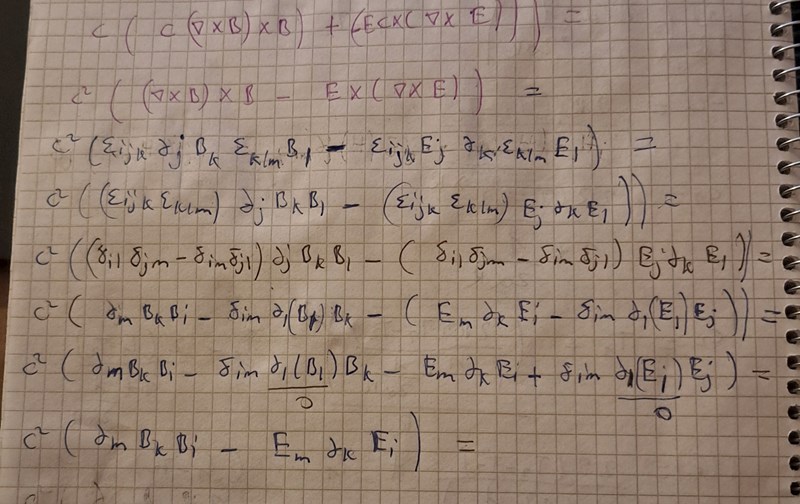 c ( c (∇×B) ×B) + (E c×(∇× E))) =
c² ( (∇×B) ×B - E×(∇×E) ) =
c² (ε_ijk ∂_j B_k ε_klm B_l - ε_ijk E_j ∂_k ε_klm E_l) =
c² ((ε_ijk ε_klm) ∂_j B_k B_l - (ε_ijk ε_klm) E_j ∂_k E_l)) =
c² ((δ_il δ_jm - δ_im δ_jl) ∂_j B_k B_l - ( δ_il δ_jm - δ_im δ_jl) E_j ∂_k E_l)) =
c² ( ∂_m B_k B_i - δ_im ∂_l(B_l) B_k - ( E_m ∂_k E_i - δ_im ∂_l(E_l) E_j )) =
c² ( ∂_m B_k B_i - δ_im ∂_l (B_l) B_k - E_m ∂_k E_i + δ_im ∂_l(E_j) E_j ) =
0 0
c² ( ∂_m B_k B_i - E_m ∂_k E_i ) =